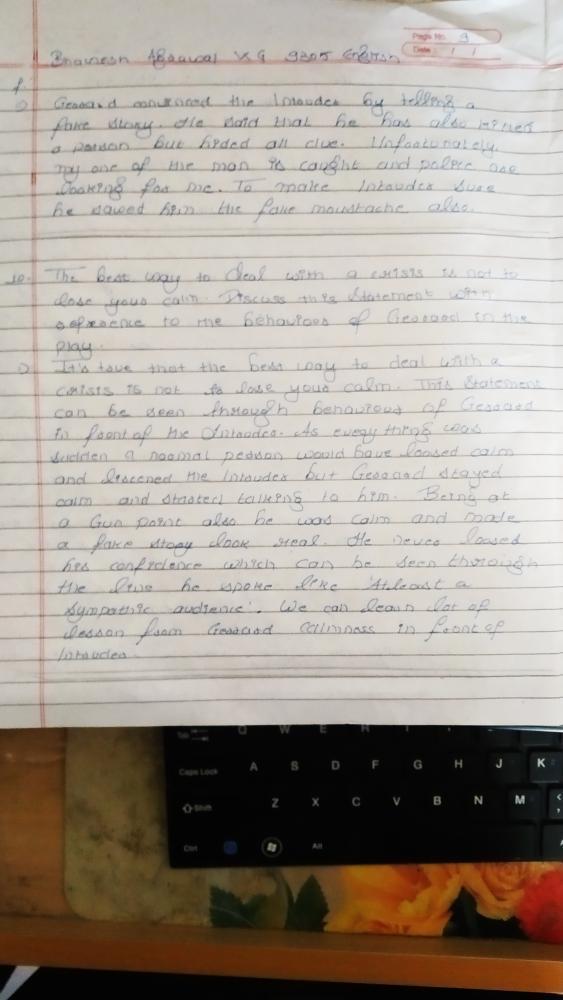 Page No. 9
Date: / /
Bhavesh Agaawal X G 9305 English
9.
Geoaard convinced the Intoudea by telling a
fake story. He said that he has also killed
a person but hided all clue. Unfoatunately
my one of the man is caught and police are
looking foa me. To make Intoudea suae
he sowed him the fake moustache also.
10. The best way to deal with a crisis is not to
lose youa calm. Discuss this Statement with
to the behaviour of Geoaard in the
play.
It's taue that the best way to deal with a
crisis is not to lose youa calm. This Statement
can be seen through behaviour of Geoaard
in faont of the Intaudea. As every thing was
sudden a noamal peason would have loosed calm
and liscened the Intaudea but Geoaard stayed
calm and staated talking to him. Being at
a Gun point also he was calm and made
a fake stoay look real. He nevea loosed
his confidence which can be seen through
the line he spoke like 'Atleast a
sympathic audience'. We can leaan lot of
lesson faom Geoaard calmness in faont of
Intaudea.
Tab
Q W E R T
Caps Lock A S D F G H J K
Shift Z X C V B N M <
,
Ctrl Alt